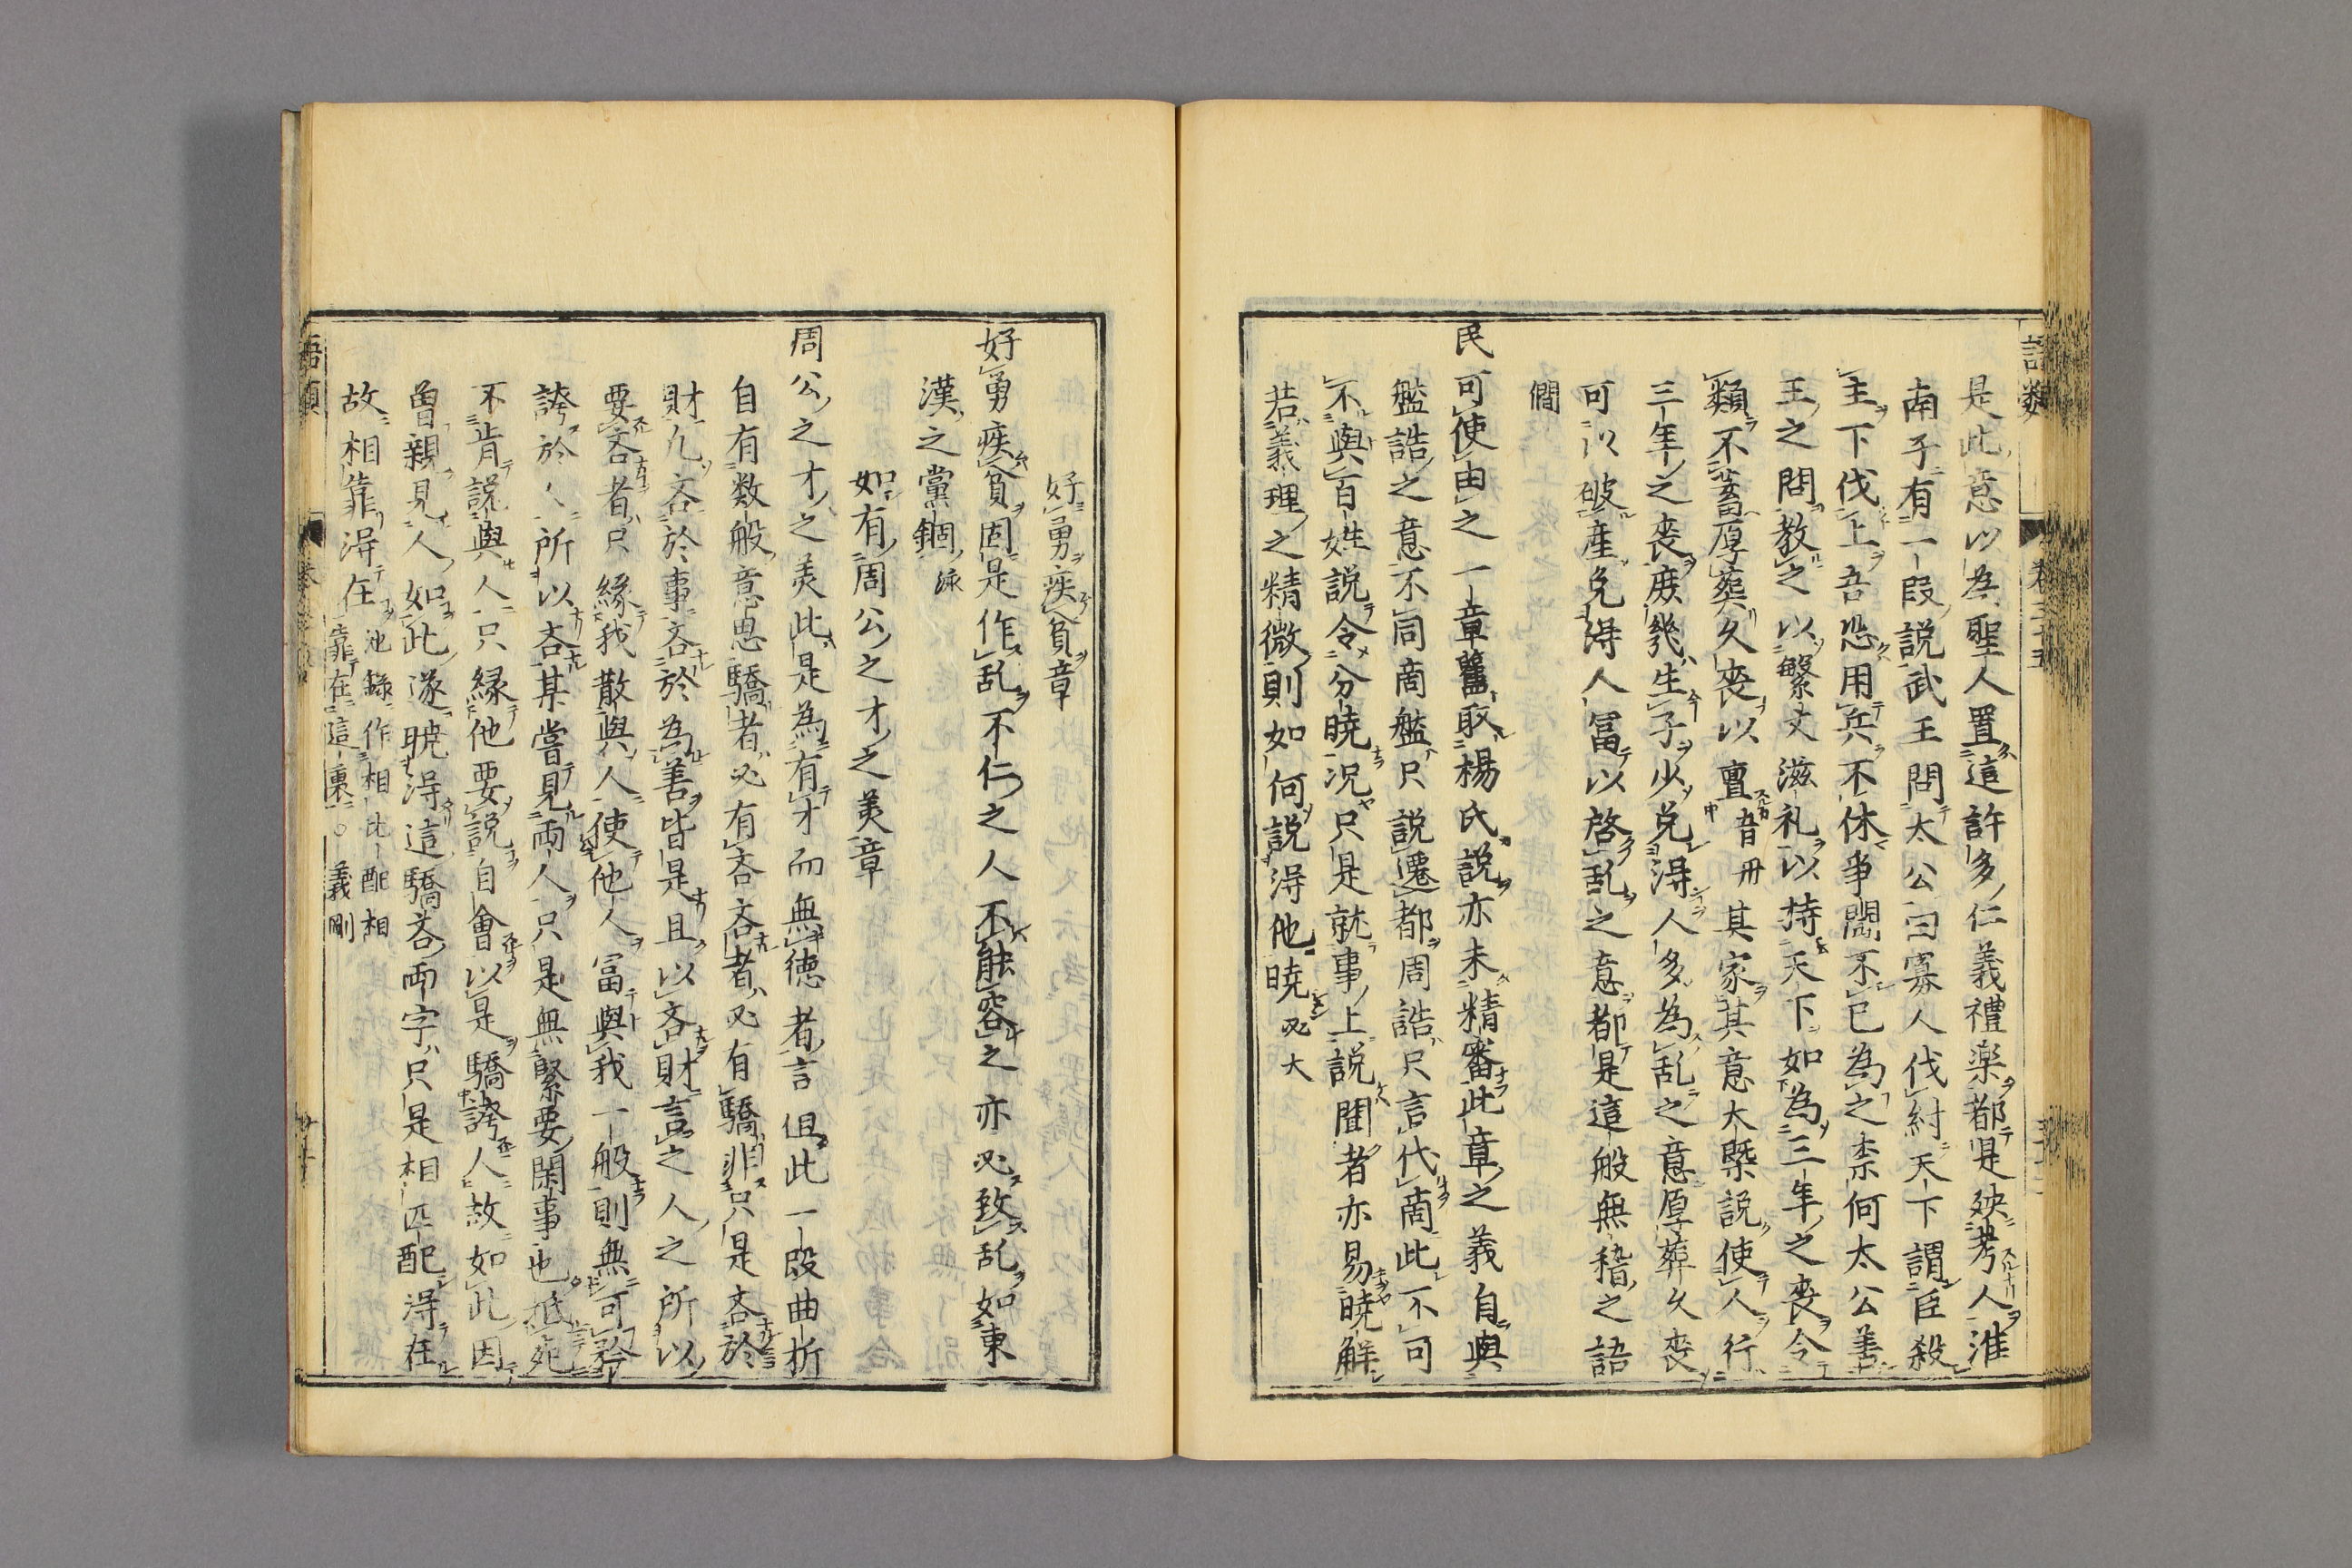 語類 卷三十五
是此意以為聖人置這許多仁義禮楽都是殃考人淮
南子有一段説武王問太公曰寡人伐紂天下謂臣殺
主下伐上吾恐用兵不休争闘不已為之柰何太公善
王之問教之以繁文滋礼以持天下如為三年之喪令
類不蓄厚葬久喪以亶音丹其家其意大槩説使人行
三年之喪庶幾生子少免得人多為乱之意厚葬久喪
可以破産免得人冨以啓乱之意都是這般無稽之語
僩
民可使由之一章舊取楊氏説亦未精審此章之義自與
盤誥之意不同商盤只説遷都周誥只言代商此不可
不與百姓説令分暁况只是就事上説聞者亦易暁解
若義理之精微則如何説得他暁必大
好勇疾貧章
好勇疾貧固是作乱不仁之人不能容之亦必致乱如東
漢之黨錮泳
如有周公之才之美章
周公之才之美此是為有才而無徳者言但此一段曲折
自有数般意思驕者必有吝吝者必有驕非只是吝於
財凡吝於事吝於為善皆是且以吝財言之人之所以
要吝者只緣我散與人使他人冨與我一般則無可矜
誇於人所以吝某嘗見両人只是無緊要閑事也抵死
不肯説與人只緣他要説自會以是驕誇人故如此因
曾親見人如此遂暁得這驕吝両字只是相匹配得在
故相靠得在池録作相比配相
靠在這裏○義剛
語類